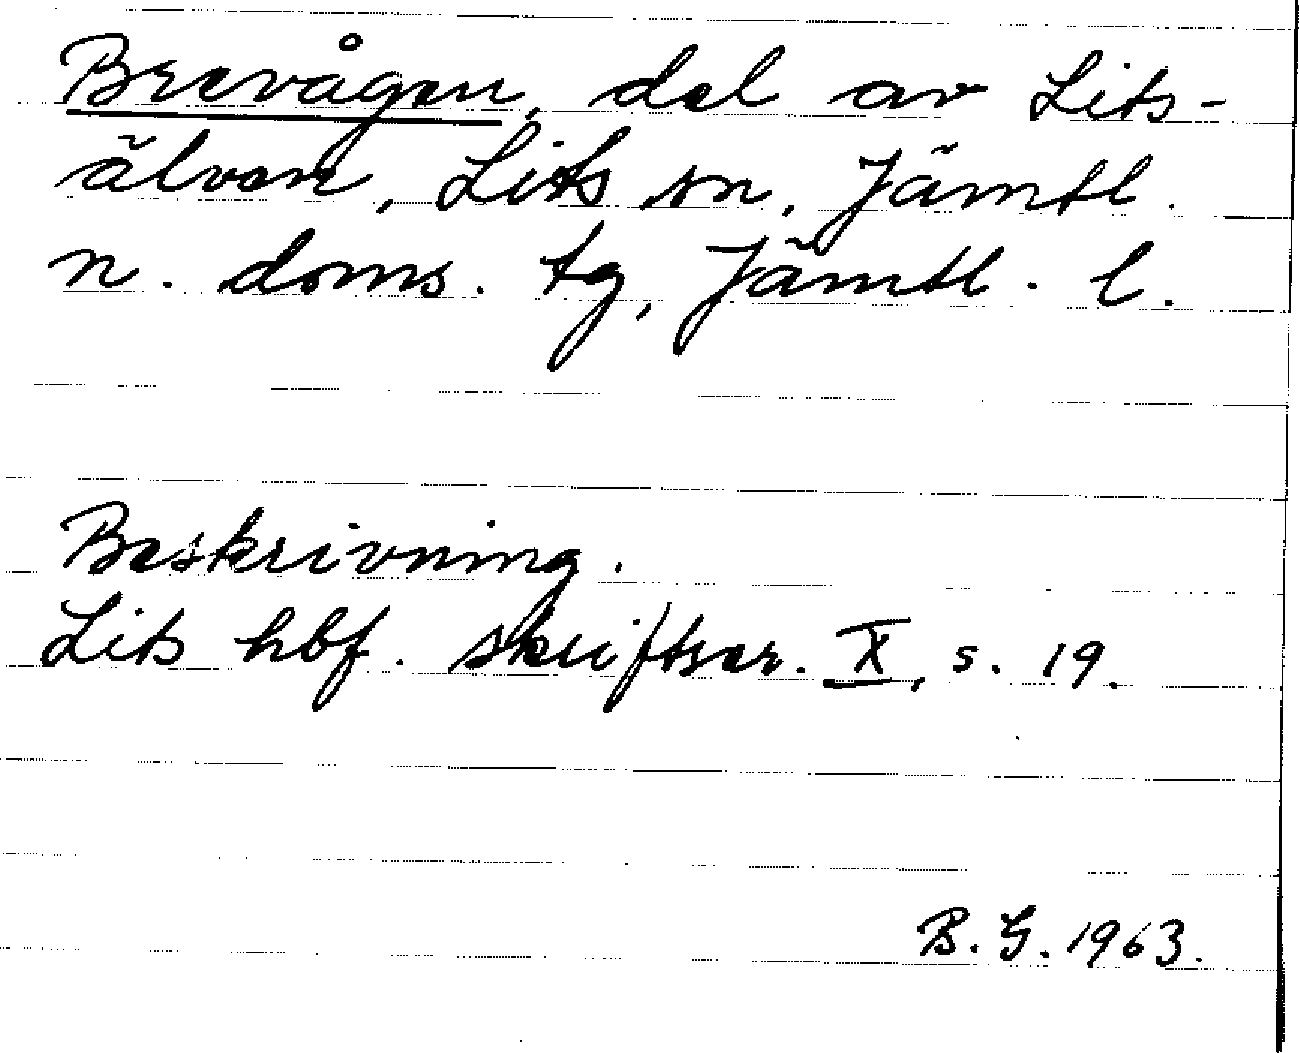 Brevågen, del av Lits-
älven, Lits sn, Jämtl.
n. doms. tg, Jämtl. l.
Beskrivning.
Lits hbf. skriftser. X, s. 19.
B. G. 1963.